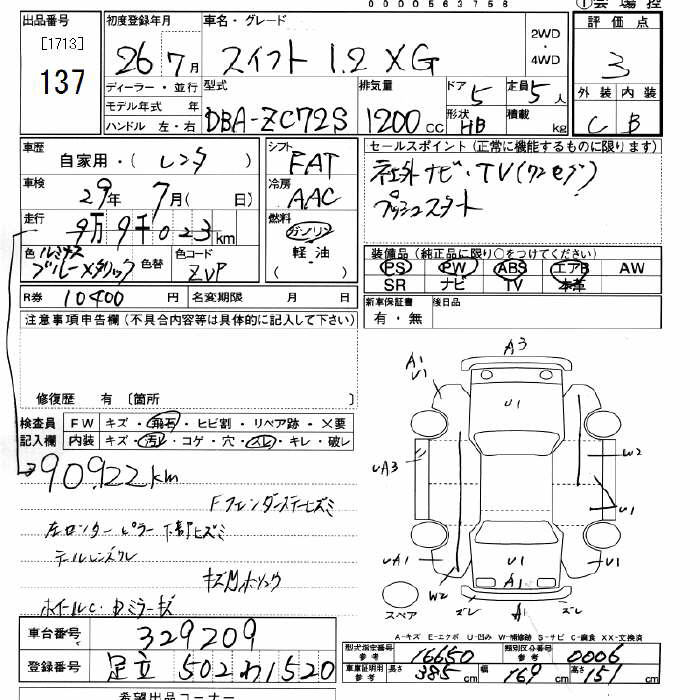 0000563756
①会場控
出品番号 初度登録年月 車名・グレード 評価点
[1713]
137
26年7月 スイフト 1.2 XG 2WD・4WD 3
ディーラー・並行 型式 排気量 ドア 定員 外装 内装
モデル年式 年 DBA-ZC72S 1200cc 5 5人 C B
ハンドル 左・右 形状 HB 積載 kg
車歴 シフト セールスポイント(正常に機能するものに限ります)
自家用・(レンタ) FAT 社外ナビ・TV(ワンセグ)
車検 冷房 プッシュスタート
29年 7月(日) AAC
走行 燃料
9万9千023km ガソリン
色 ルミナス 色替 色コード 軽油 装備品(純正品に限り○をつけてください)
ブルーメタリック ZVP ( ) PS PW ABS エアB AW
SR ナビ TV 本革
R券 10400円 名変期限 月 日 新車保証書 後日品
有・無
注意事項申告欄(不具合内容等は具体的に記入して下さい)
修復歴 有 〔箇所 〕
検査員 FW キズ・飛石・ヒビ割・リペア跡・×要
記入欄 内装 キズ・汚レ・コゲ・穴・スレ・キレ・破レ
90,922km
Fフェンダーステーヒズミ
左センターピラー下部ヒズミ
テールレンズワレ
ホイールC・Dミラーキズ
A3
A1
U1
U1
W2
UA3
U1
UA1
U1
U1
W2
A1
ズレ
A1
ズレ
スペア
A-キズ E-エクボ U-凹み W-補修跡 S-サビ C-腐食 XX-交換済
車台番号 329209
型式指定番号 参考 16650 類別区分番号 参考 0006
登録番号 足立 502 わ 1520
車庫証明用 参考 長さ 385cm 幅 169cm 高さ 151cm
希望出品コーナー